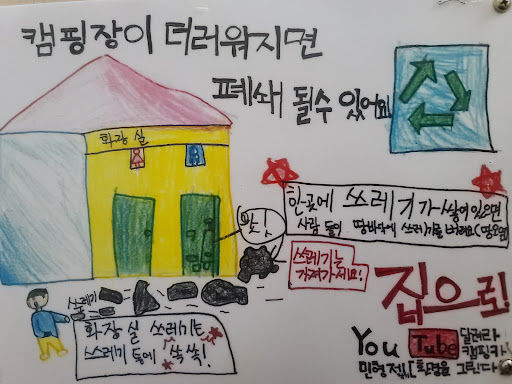 캠핑장이 더러워지면
폐쇄 될수 있어요
화장 실
한곳에 쓰레기가 쌓여있으면
사람 들이 땅바닥에 쓰레기를 버려요
쓰레기는
가져가세요!
집으로!
쓰레기
화장 실 쓰레기도
쓰레기 통에 쏙쏙!
You Tube 달려라
캠핑카
민형제